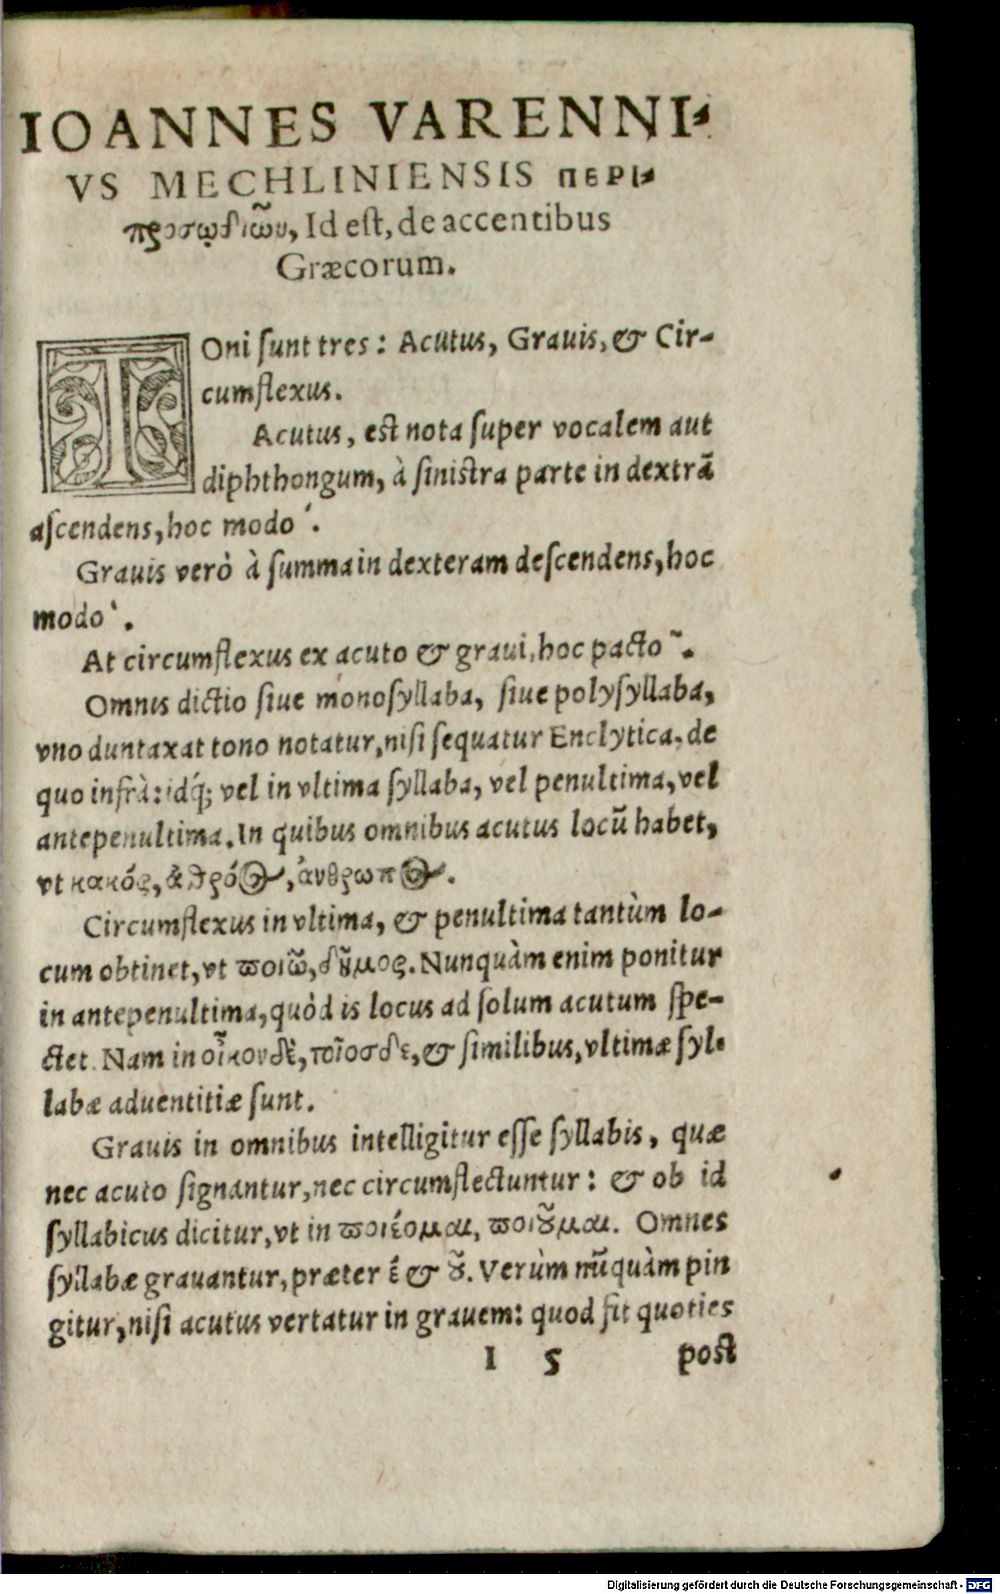 IOANNES VARENNI-
VS MECHLINIENSIS ΠΕΡΙ-
προσῳδιῶν, Id eſt, de accentibus
Græcorum.
TOni ſunt tres: Acutus, Grauis, & Cir-
cumflexus.
Acutus, eſt nota ſuper vocalem aut
diphthongum, à ſiniſtra parte in dextrā
aſcendens, hoc modo ´.
Grauis verò à ſumma in dexteram deſcendens, hoc
modo `.
At circumflexus ex acuto & graui, hoc pacto ῀.
Omnis dictio ſiue monoſyllaba, ſiue polyſyllaba,
vno duntaxat tono notatur, niſi ſequatur Enclytica, de
quo infrà: idq́; vel in vltima ſyllaba, vel penultima, vel
antepenultima. In quibus omnibus acutus locū habet,
vt κακός, ἀθρόος, ἄνθρωπος.
Circumflexus in vltima, & penultima tantùm lo-
cum obtinet, vt ϖοιῶ, δȣ̃μος. Nunquàm enim ponitur
in antepenultima, quòd is locus ad ſolum acutum ſpe-
ctet. Nam in οἶκονδὲ, τοῖοσδε, & ſimilibus, vltimæ ſyl-
labæ aduentitiæ ſunt.
Grauis in omnibus intelligitur eſſe ſyllabis, quæ
nec acuto ſignantur, nec circumflectuntur: & ob id
ſyllabicus dicitur, vt in ϖοιέομαι, ϖοιȣ̃μαι. Omnes
ſyllabæ grauantur, præter έ & ȣ̃. Verùm nū́quàm pin
gitur, niſi acutus vertatur in grauem: quod fit quoties
I 5 poſt
Digitalisierung gefördert durch die Deutsche Forschungsgemeinschaft - DFG